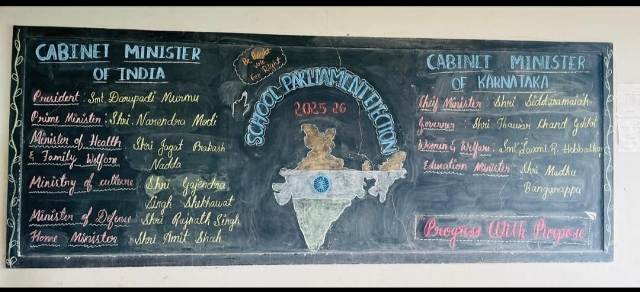 CABINET MINISTER
OF INDIA
President : Smt. Darupadi Murmu
Prime Minister : Shri. Narendra Modi
Minister of Health Shri Jagat Prakash
& Family Welfare Nadda
Ministry of culture Shri Gajendra
Singh Shekhawat
Minister of Defence Shri Rajnath Singh
Home Minister Shri Amit Shah
Be
Vote
For Right
SCHOOL PARLIAMENT ELECTION
2025-26
CABINET MINISTER
OF KARNATAKA
Chief Minister Shri Siddaramaiah
Governor Shri Thawar Chand Gehlot
Women & Welfare : Smt. Laxmi R. Hebbalkar
Education Minister Shri Madhu
Bangarappa
Progress With Purpose